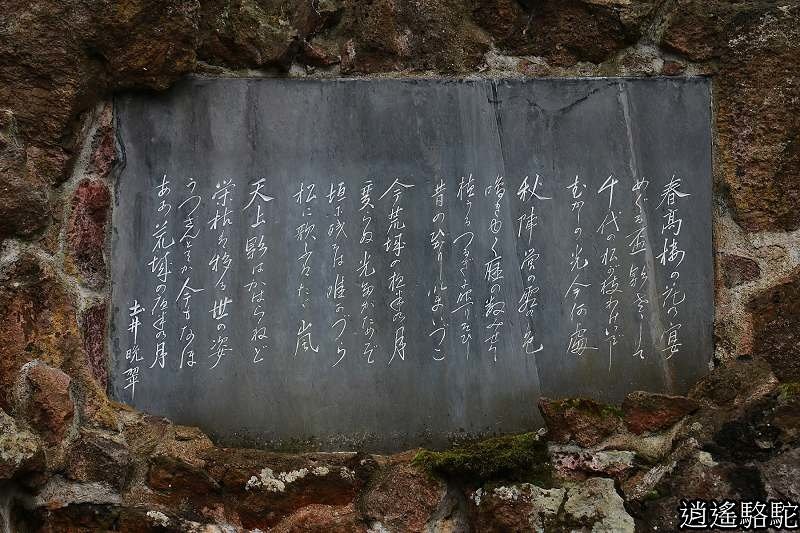 春高楼の花の宴
めぐる盃影さして
千代の松が枝わけいでし
むかしの光今何處
秋陣営の霜の色
鳴き行く雁の数みせて
植うるつるぎに照りそひし
昔のひかり今いづこ
今荒城の夜半の月
変らぬ光誰がためぞ
垣に残るは唯かづら
松に歌ふはたゞ嵐
天上影はかはらねど
栄枯は移る世の姿
うつさんとてか今もなほ
あゝ荒城の夜半の月
土井晩翠
逍遙駱駝